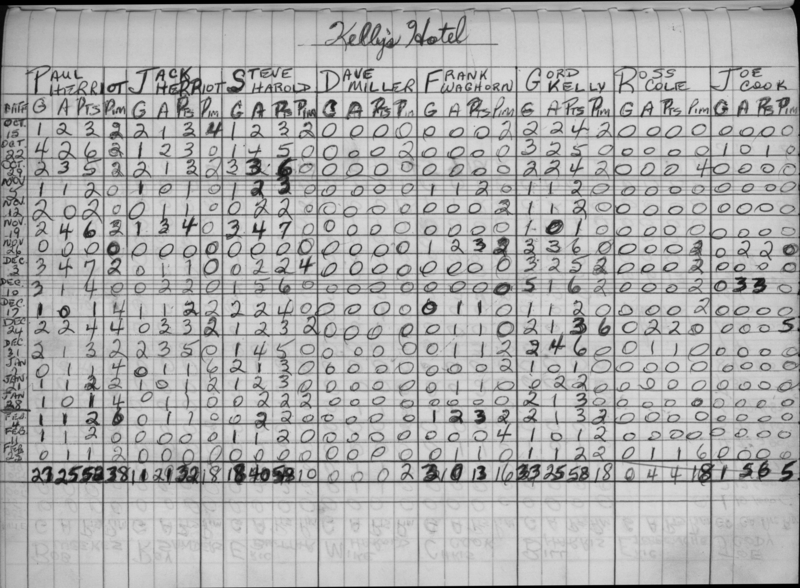 Kelly's Hotel
PAUL HERRIOT JACK HERRIOT STEVE HAROLD DAVE MILLER FRANK WAGHORN GORD KELLY ROSS COLE JOE COOK
DATE G A PTS PIM G A PTS PIM G A PTS PIM G A PTS PIM G A PTS PIM G A PTS PIM G A PTS PIM G A PTS PIM
OCT 15 1 2 3 2 2 1 3 4 1 2 3 2 0 0 0 0 0 0 0 2 2 2 4 2 0 0 0 0 0 0 0 0
OCT 22 4 2 6 2 1 2 3 0 1 4 5 0 0 0 0 2 0 0 0 0 3 2 5 0 0 0 0 0 1 0 1 0
OCT 29 2 3 5 2 2 1 3 2 3 3 6 0 0 0 0 0 0 0 0 2 2 4 2 0 0 0 4 0 0 0 0
NOV 5 1 1 2 0 1 0 1 0 1 2 3 0 0 0 0 0 1 1 2 0 1 1 2 0 0 0 0 0 0 0 0 0
NOV 12 2 0 2 0 0 1 1 0 0 2 2 0 0 0 0 0 0 0 0 2 1 1 2 0 0 0 0 0 0 0 0 0
NOV 19 2 4 6 2 1 3 4 0 3 4 7 0 0 0 0 0 0 0 0 0 1 0 1 0 0 0 0 0 0 0 0 0
NOV 26 0 0 0 0 0 0 0 0 0 0 0 0 0 0 0 0 1 2 3 2 3 3 6 0 0 0 0 2 0 2 2 0
DEC 3 3 4 7 2 0 1 1 0 0 2 2 4 0 0 0 0 0 0 0 0 3 2 5 2 0 0 0 2 0 0 0 0
DEC 10 3 1 4 0 0 2 2 0 1 5 6 0 0 0 0 0 0 0 0 0 5 1 6 2 0 0 0 2 0 3 3 0
DEC 17 1 0 1 4 1 1 2 2 2 2 4 0 0 0 0 0 0 1 1 0 1 1 2 0 0 0 0 2 0 0 0 0
DEC 24 2 2 4 4 0 3 3 2 1 2 3 2 0 0 0 0 0 1 1 0 2 1 3 6 0 2 2 0 0 0 0 5
DEC 31 2 1 3 2 2 3 5 0 1 4 5 0 0 0 0 0 0 1 1 2 2 4 6 0 0 1 1 0 0 0 0 0
JAN 0 1 1 4 0 1 1 6 2 1 3 0 0 0 0 0 0 0 0 2 1 0 1 0 0 0 0 0 0 0 0 0
JAN 21 1 1 2 2 1 0 1 2 1 2 3 0 0 0 0 0 0 1 1 0 0 2 2 0 0 0 0 0 0 0 0
JAN 28 1 0 1 4 0 1 1 0 0 2 2 2 0 0 0 0 0 1 1 0 2 1 3 0 0 0 0 0 0 0 0 0
FEB 4 1 1 2 6 0 1 1 0 0 2 2 0 0 0 0 0 1 2 3 2 2 1 3 2 0 0 0 0 0 0 0 0
FEB 11 1 1 2 0 0 0 0 0 1 1 2 0 0 0 0 0 0 0 0 4 1 0 1 2 0 0 0 0 0 0 0 0
FEB 25 0 1 1 2 0 0 0 0 0 0 0 0 0 0 0 0 0 1 1 0 1 1 2 2 0 1 1 6 0 0 0 0
23 25 52 38 11 21 32 18 18 40 58 10 0 0 0 2 3 10 13 16 33 25 58 18 0 4 4 18 1 5 6 5